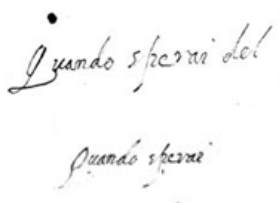 Quando sperai del
Quando sperai